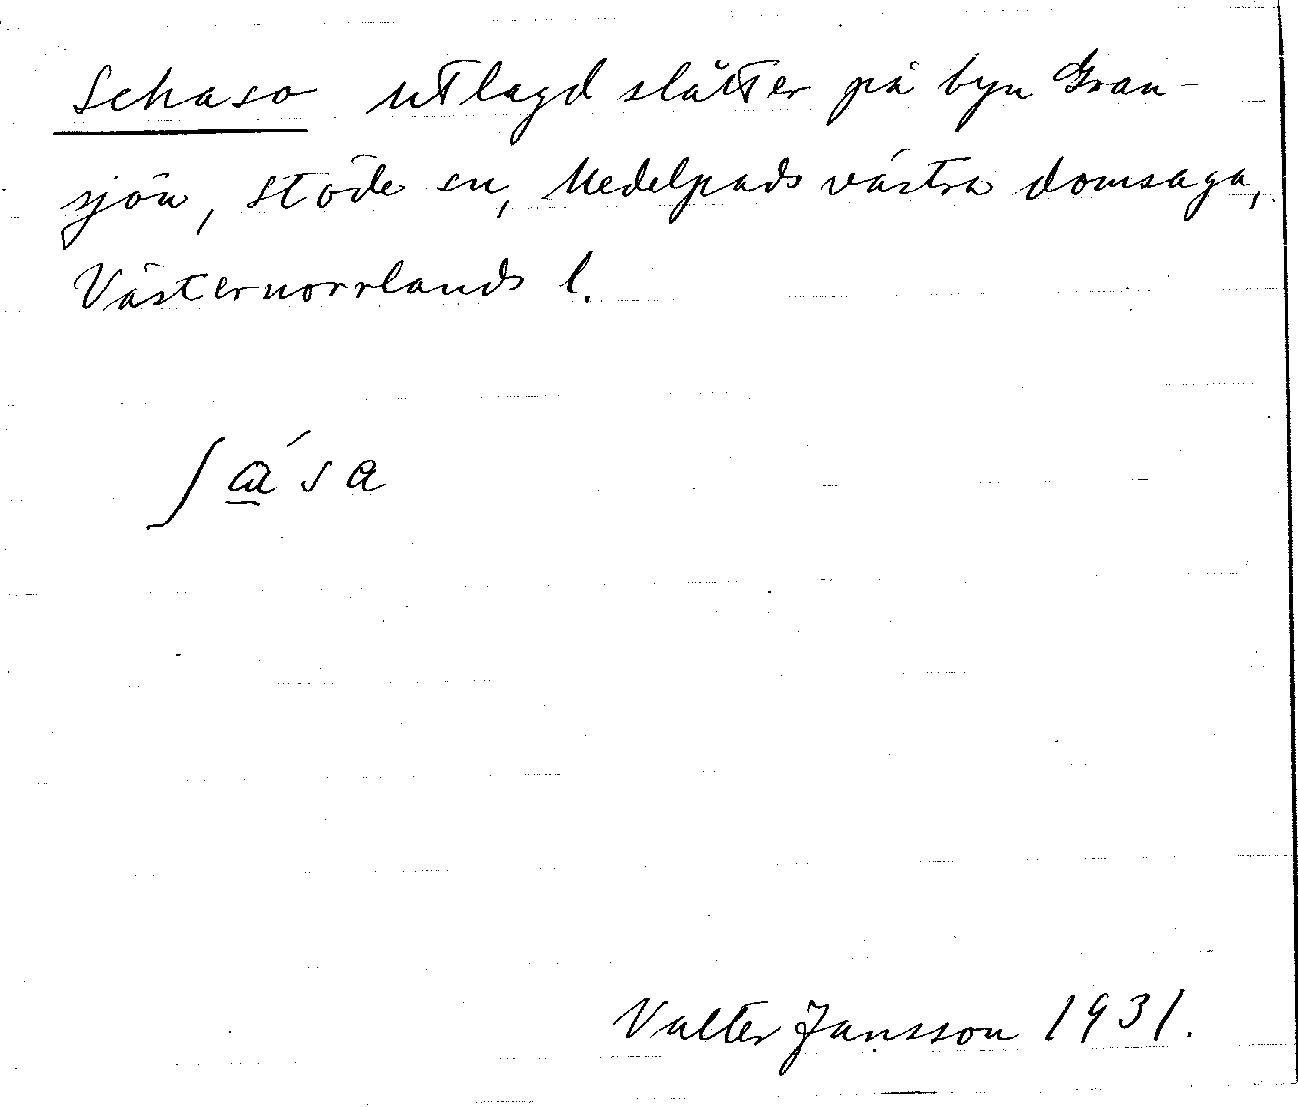 Schaso utlagd slåtter på byn Gran-
sjön, Stöde sn, Medelpads västra domsaga,
Västernorrlands l.
ʃa̲´sa
Valter Jansson 1931.